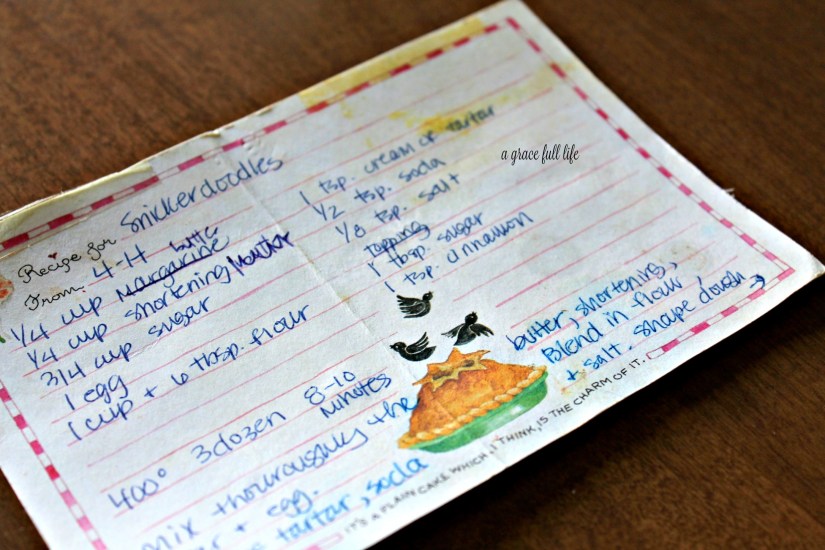 Recipe for Snickerdoodles
From: 4-H
1/4 cup Margarine
1/4 cup shortening
3/4 cup sugar
1 egg
1 cup + 6 tbsp. flour
1 tsp. cream of tartar
1/2 tsp. soda
1/8 tsp. salt
Topping
1 tbsp. sugar
1 tsp. cinnamon
400° 3 dozen 8-10 minutes
mix thouroughly the butter, shortening,
+ egg. Blend in flour,
tartar, soda + salt. Shape dough →
IT'S A PLAIN CAKE WHICH, I THINK, IS THE CHARM OF IT.
a grace full life